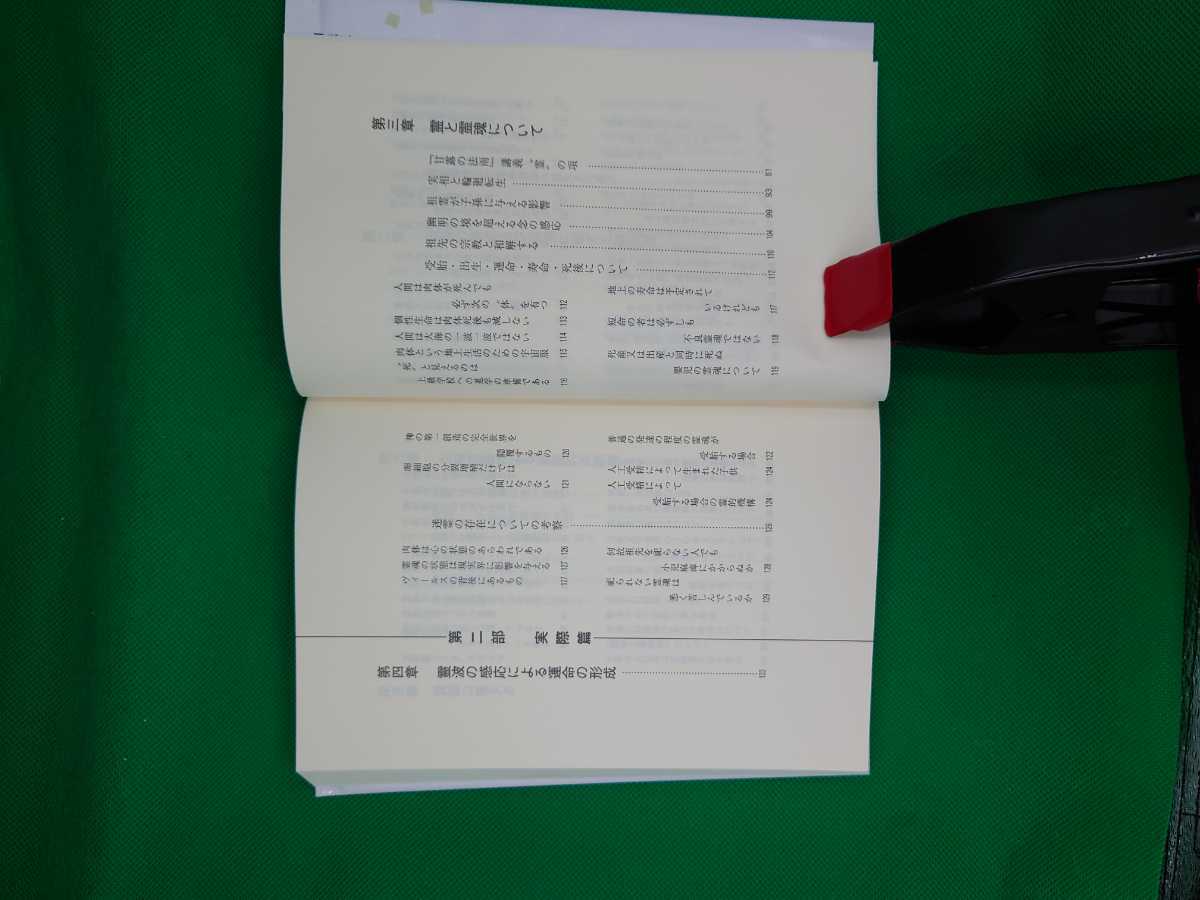 第三章　霊と霊魂について
「甘露の法雨」講義〝霊〟の項……81
実相と輪廻転生……93
祖霊が子孫に与える影響……99
幽明の境を超える念の感応……104
祖先の宗教と和解する……110
受胎・出生・運命・寿命・死後について……112
人間は肉体が死んでも
必ず次の〝体〟を有つ 112
個性生命は肉体死後も滅しない 113
人間は大海の一波一波ではない 114
肉体という地上生活のための宇宙服 115
〝死〟と見えるのは
上級学校への進学の準備である 116
地上の寿命は予定されて
いるけれども 117
短命の者は必ずしも
不良霊魂ではない 118
死産又は出産と同時に死ぬ
嬰児の霊魂について 119
神の第一創造の完全世界を
隠覆するもの 120
卵細胞の分裂増殖だけでは
人間にならない 121
普通の発達の程度の霊魂が
受胎する場合 122
人工受精によって生まれた子供 124
人工受精によって
受胎する場合の霊的機構 124
迷霊の存在についての考察……126
肉体は心の状態のあらわれである 126
霊魂の状態は現実界に影響を与える 127
ヴィールスの背後にあるもの 127
何故祖先を祀らない人でも
小児麻痺にかからぬか 128
祀られない霊魂は
悉く苦しんでいるか 129
第二部　実際篇
第四章　霊波の感応による運命の形成……133